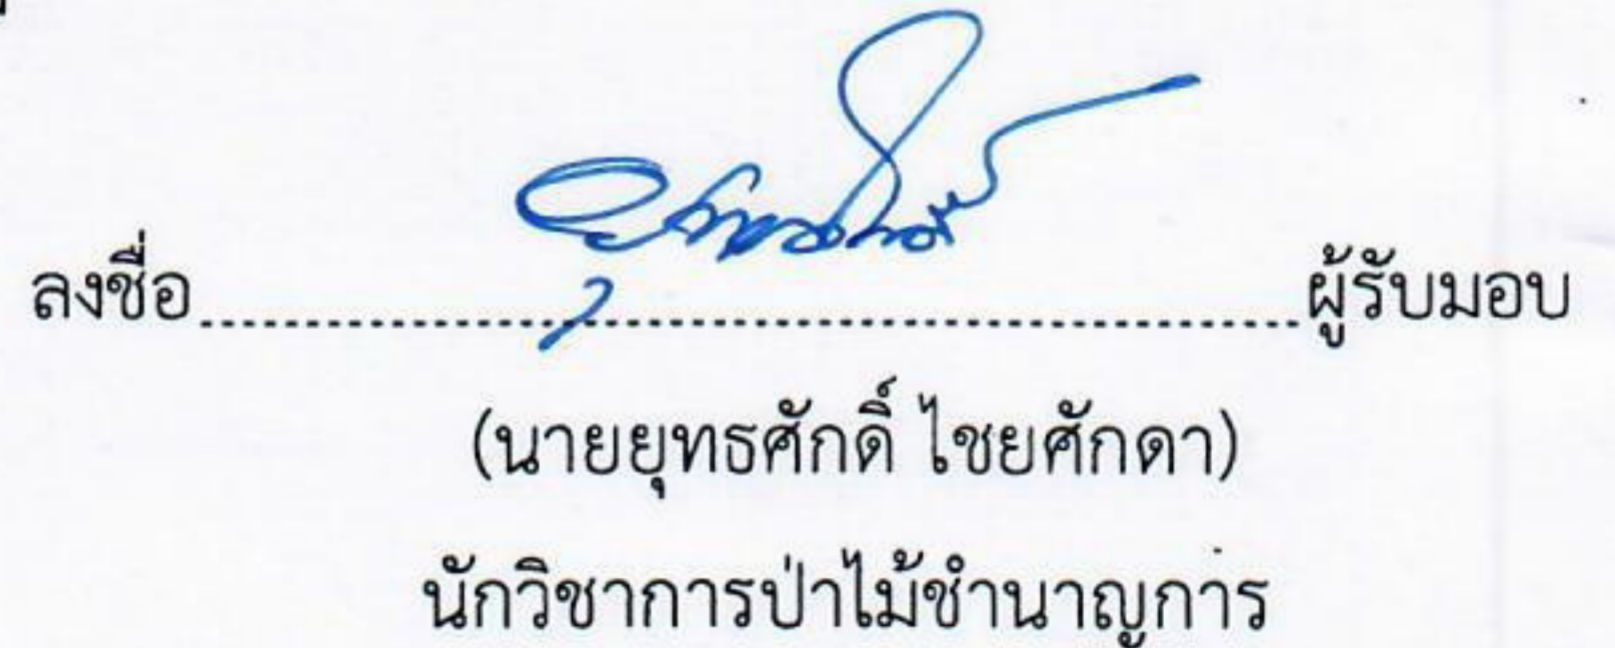 ลงชื่อ........................................................ผู้รับมอบ
(นายยุทธศักดิ์ ไชยศักดา)
นักวิชาการป่าไม้ชำนาญการ